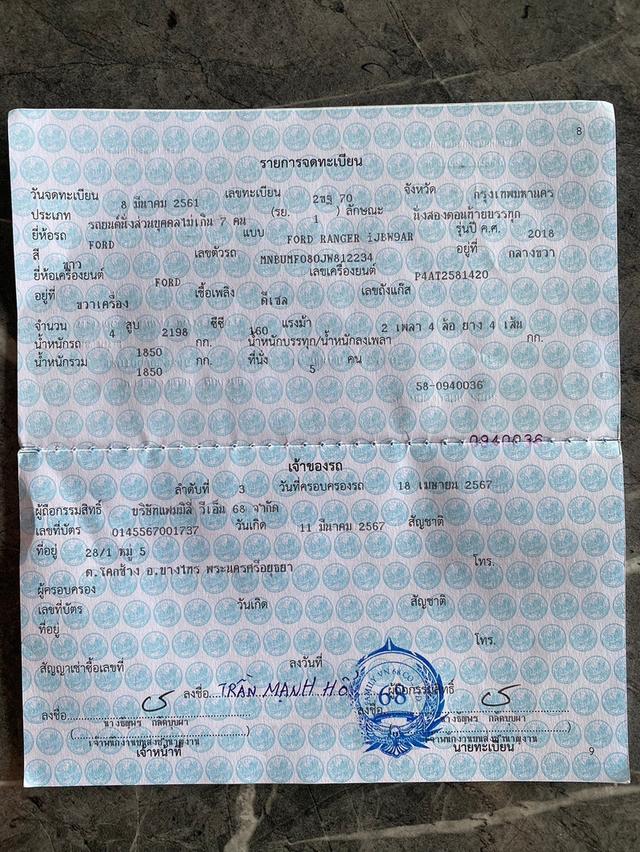 8
รายการจดทะเบียน
วันจดทะเบียน 8 มีนาคม 2561 เลขทะเบียน 2ขฐ 70 จังหวัด กรุงเทพมหานคร
ประเภท รถยนต์นั่งส่วนบุคคลไม่เกิน 7 คน (รย. 1 ) ลักษณะ นั่งสองตอนท้ายบรรทุก
ยี่ห้อรถ FORD แบบ FORD RANGER iJBW9AR รุ่นปี ค.ศ. 2018
สี ขาว เลขตัวรถ MNBUMF080JW812234 อยู่ที่ กลางขวา
ยี่ห้อเครื่องยนต์ FORD เลขเครื่องยนต์ P4AT2581420
อยู่ที่ ขวาเครื่อง เชื้อเพลิง ดีเซล เลขถังแก๊ส
จำนวน 4 สูบ 2198 ซีซี 160 แรงม้า 2 เพลา 4 ล้อ ยาง 4 เส้น
น้ำหนักรถ 1850 กก. น้ำหนักบรรทุก/น้ำหนักลงเพลา กก.
น้ำหนักรวม 1850 กก. ที่นั่ง 5 คน
58-0940036
0940036
เจ้าของรถ
ลำดับที่ 3 วันที่ครอบครองรถ 18 เมษายน 2567
ผู้ถือกรรมสิทธิ์ บริษัทแฟมมิลี่ วีเอ็น 68 จำกัด
เลขที่บัตร 0145567001737 วันเกิด 11 มีนาคม 2567 สัญชาติ
ที่อยู่ 28/1 หมู่ 5 โทร.
ต.โคกช้าง อ.บางไทร พระนครศรีอยุธยา
ผู้ครอบครอง
เลขที่บัตร วันเกิด สัญชาติ
ที่อยู่ โทร.
สัญญาเช่าซื้อเลขที่ ลงวันที่
ลงชื่อ TRẦN MẠNH ผู้ถือกรรมสิทธิ์
FAMILY VN 68 CO
68
ลงชื่อ ลงชื่อ
เจ้าหน้าที่ นายทะเบียน
9